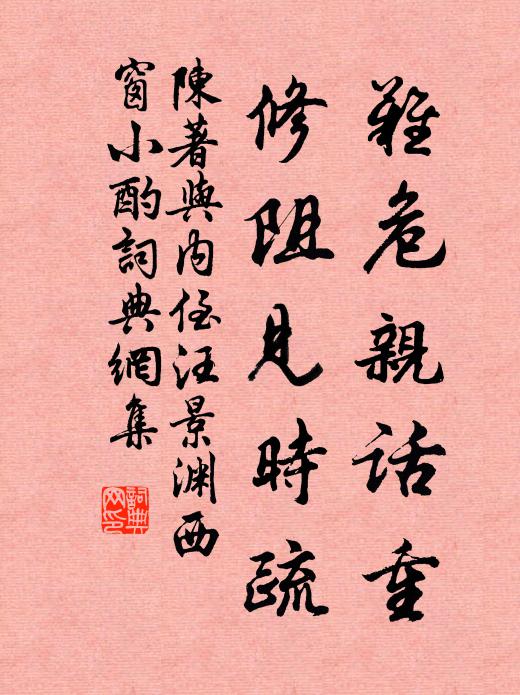 難危親話重
修阻見時疏
陳著與内侄汪景淵西
窗小酌詞典網集
詞典
网印